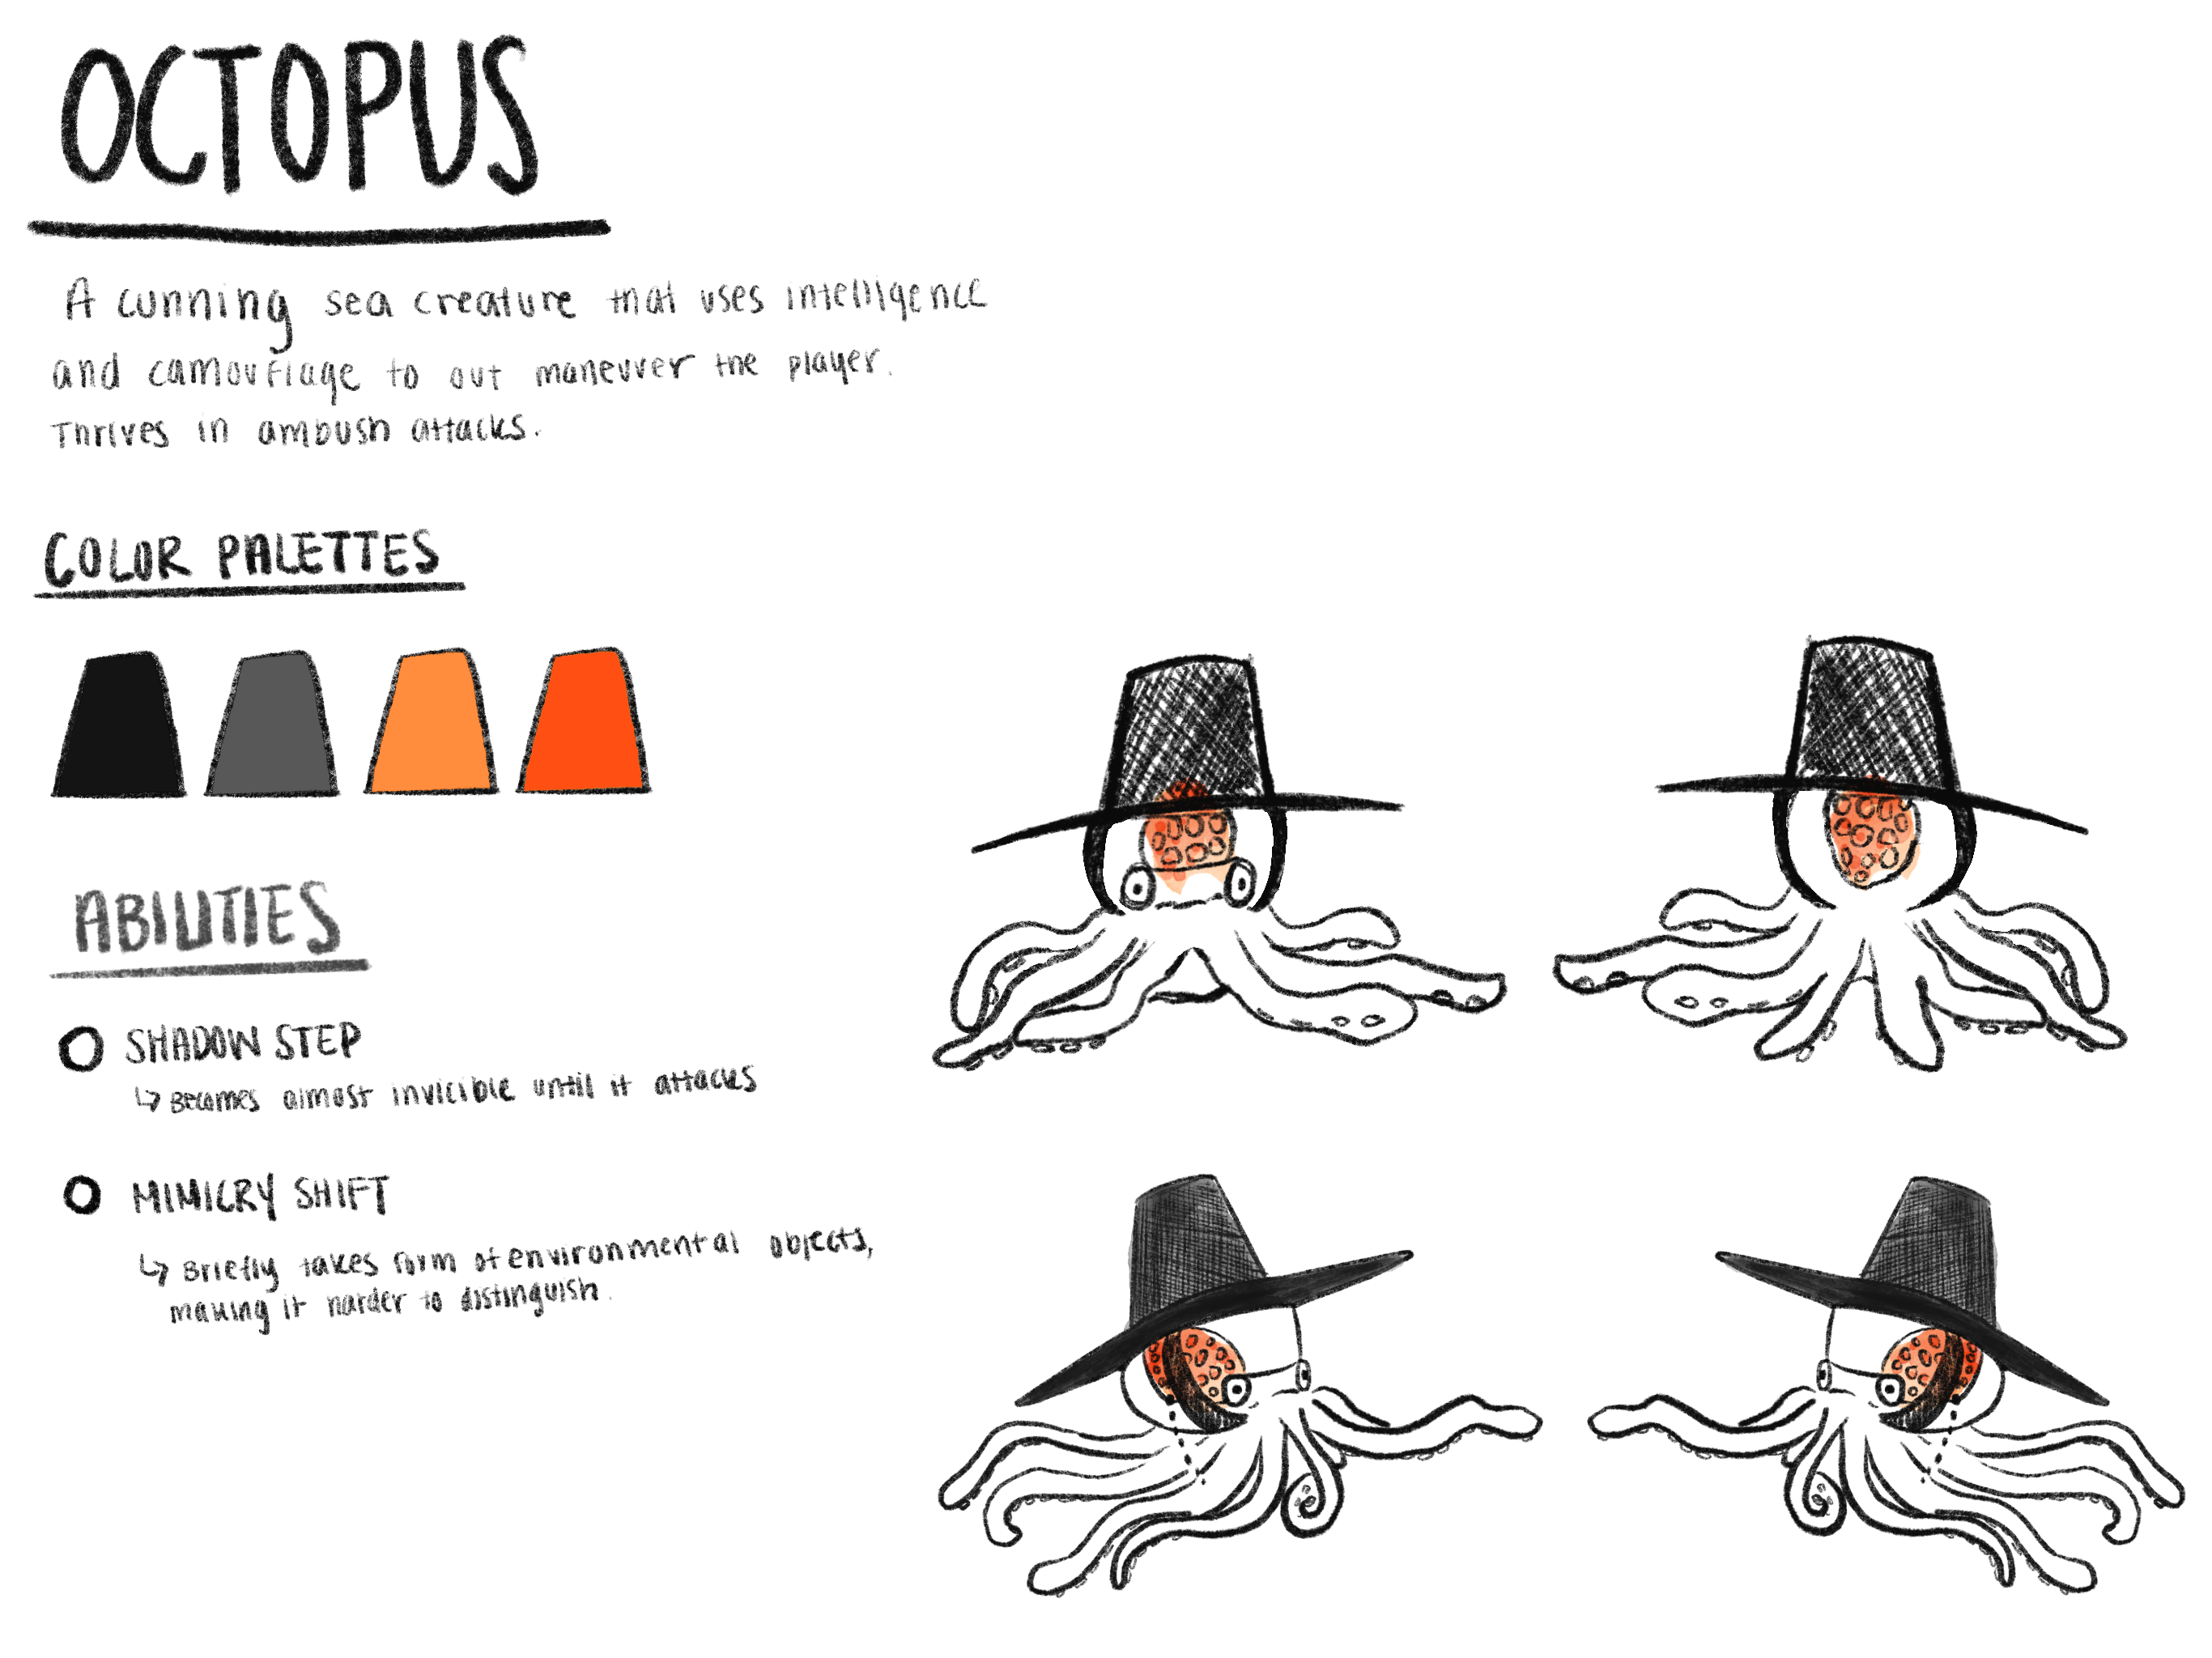 OCTOPUS
A cunning sea creature that uses intelligence
and camouflage to out maneuver the player.
Thrives in ambush attacks.
COLOR PALETTES
ABILITIES
SHADOW STEP
↳ Becomes almost invicible until it attacks
MIMICRY SHIFT
↳ Briefly takes form of environmental objects,
making it harder to distinguish.